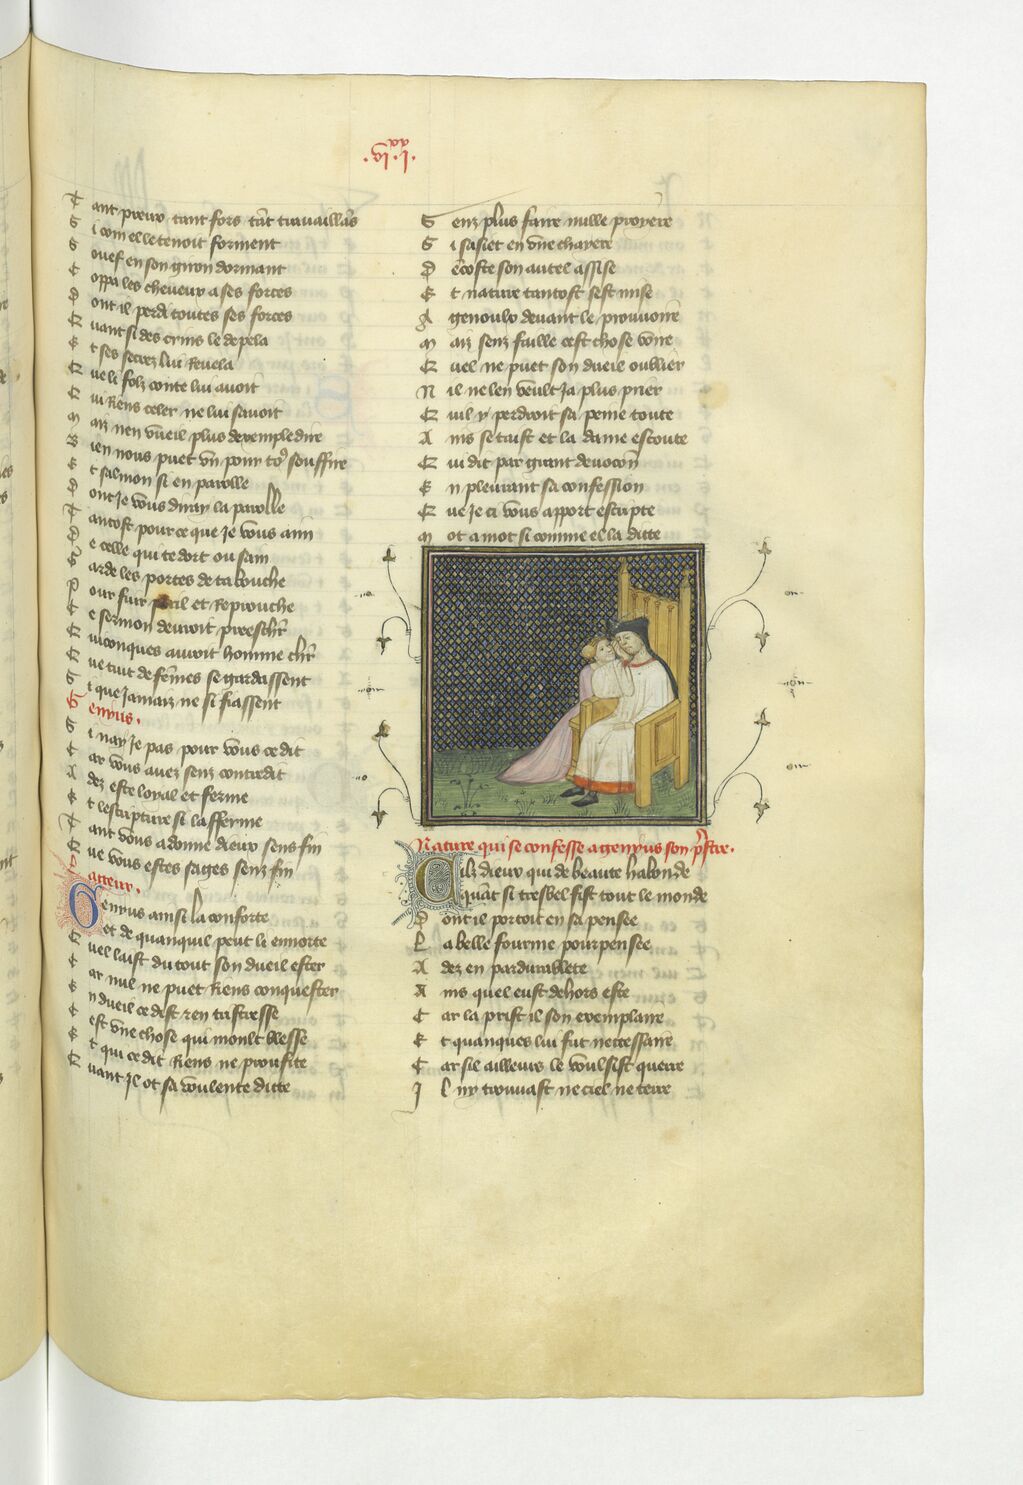 .vi.xx i.
Tant preux tant fors tāt trauaillās
Si com elle tenoit forment
Souef en son giron dormant
Coppa les cheueux a ses forces
Dont il perdi toutes ses forces
Quant si des crins le depela
Et ses secrez lui reuela
Que li folz conte lui auoit
Qui riens celer ne lui sauoit
Maiz nen vueil plus dexemple dire
Bien nous puet vn pour to9 souffire
Et salmon si en parolle
Dont Je vous diray la parolle
Tantost pour ce que Je vous aim
De celle qui te dort ou sain
Garde les portes de ta bouche
Pour fuir peril et reprouche
Ce sermon deuroit preeschr
Quiconques auroit homme chr
Que tuit de fēmes se gardassent
Si que Jamaiz ne si fiassent
Genyus.
Si nay Je pas pour vous ce dit
Car vous auez senz contredit
Adez este loyal et ferme
Et lescripture si lafferme
Tant vous a donne dieux sens fin
Que vous estes sages senz fin
Lacteur.
Genyus ainsi la conforte
Et de quanquil peut le ennorte
Quel laist du tout son dueil ester
Car nul ne puet riens conquester
En dueil ce dist 7 en tristesse
Cest vne chose qui moult blesse
Et qui ce dit riens ne proufite
Quant Jl ot sa voulente ditte
Senz plus faire nulle proyere
Si sasiet en vne chayere
Decoste son autel assise
Et nature tantost sest mise
A genoulx deuant le prouuoire
Maiz senz faille cest chose voire
Quel ne puet son dueil oublier
Nil ne len veult Ja plus prier
Quil y perdroit sa peine toute
Ains se taist et la dame escoute
Qui dit par grant deuocōn
En plourant sa confession
Que Je ci vous apport escripte
Mot a mot si comme el la ditte
Nature qui se confesse a genyus son prestre.
Cilz dieux qui de beaute habonde
Quāt si tresbel fist tout le monde
Dont il portoit en sa pensee
La belle fourme pourpensee
Adez en pardurablete
Ains quel eust dehors este
Car la prist il son exemplaire
Et quanques lui fut neccessaire
Car sil ailleurs le voulsist querre
Jl ny trouuast ne ciel ne terre